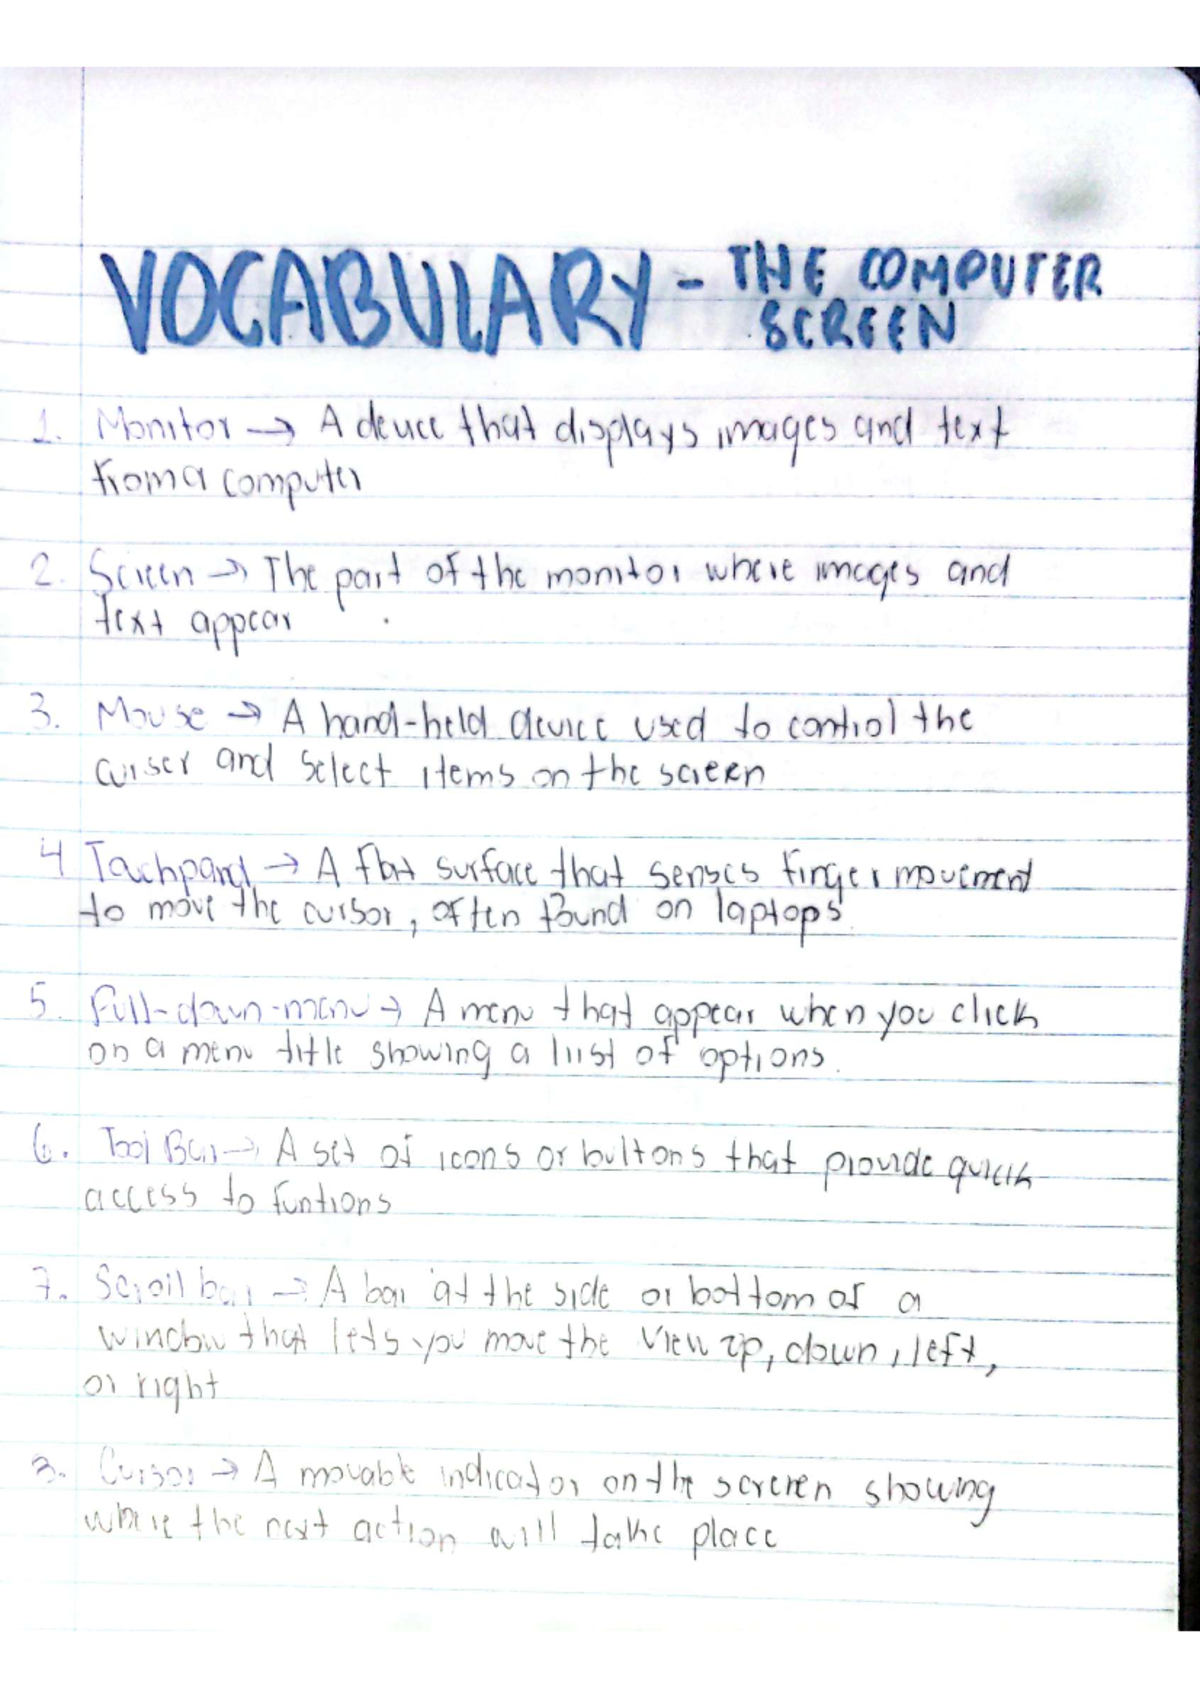 VOCABULARY - THE COMPUTER
SCREEN
1. Monitor → A device that displays images and text
from a computer
2. Screen → The part of the monitor where images and
text appear
3. Mouse → A hand-held device used to control the
curser and select items on the screen
4 Touchpand → A flat surface that senses finger movement
to move the cursor, often found on laptops.
5. Pull-down-menu → A menu that appear when you click
on a menu title showing a liist of options.
6. Tool Bar → A set of icons or buttons that provide quick
access to funtions
7. Scroll bar → A bar at the side or bottom of a
window that lets you move the view up, down, left,
or right
8. Cursor → A movable indicator on the screen showing
where the next action will take place